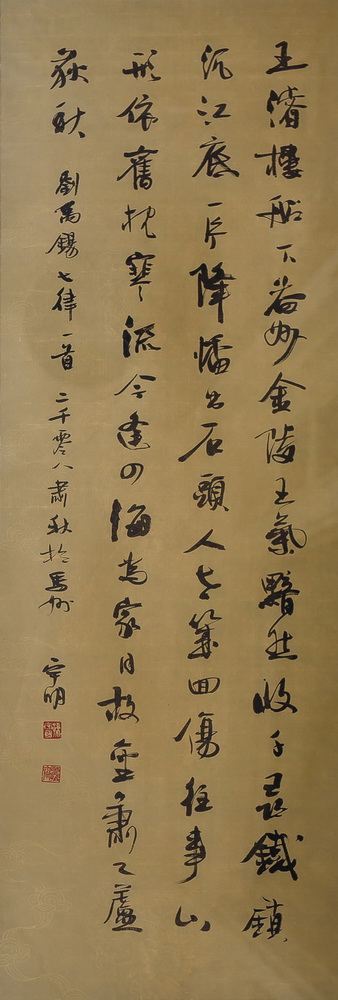 王濬樓船下益州金陵王氣黯然收千尋鐵鎖
沉江底一片降幡出石頭人世幾回傷往事山
形依舊枕寒流今逢四海為家日故壘蕭々蘆
荻秋 劉禹錫七律一首 二千零八肅秋於 宇明